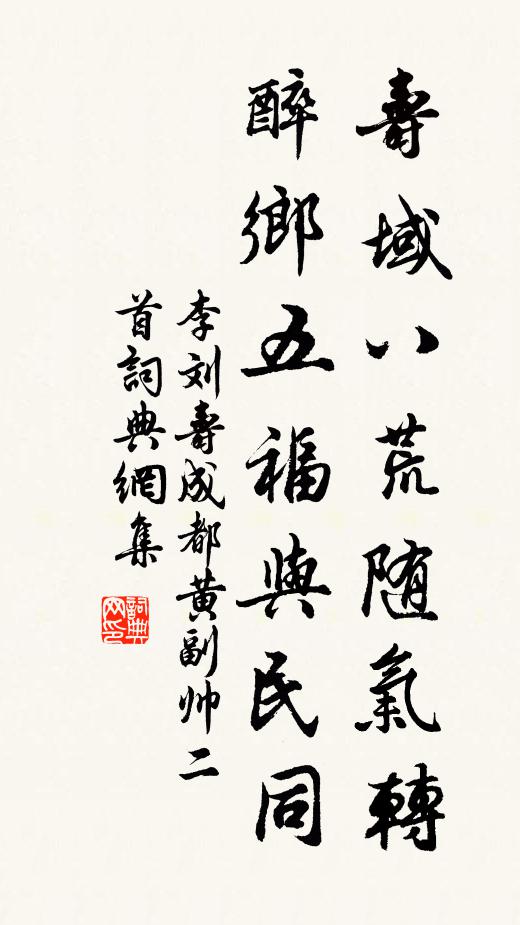 壽域八荒随氣轉
醉鄉五福與民同
李刘壽成都黄副帅二
首詞典網集
詞典
网印